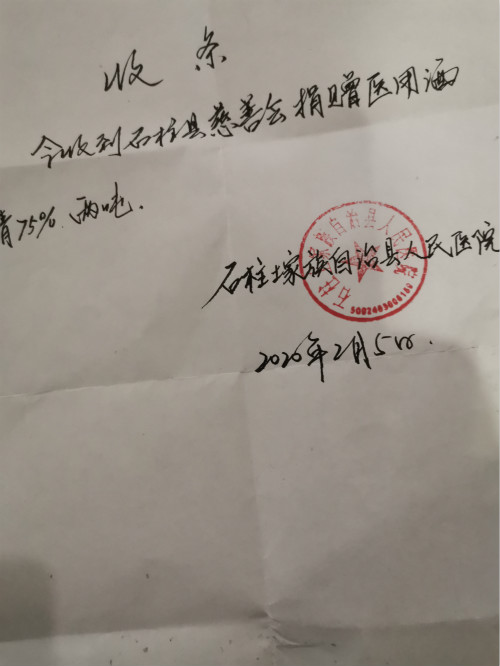 收条
今收到石柱县慈善会捐赠医用酒
精75%两吨.
石柱土家族自治县人民医院
2020年2月5日.
石柱土家族自治县人民医院